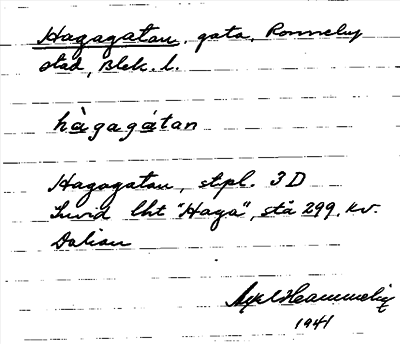 Hagagatan, gata, Ronneby
stad, Blek. l.
hàgagátan
Hagagatan, stpl. 3D
Invid lht "Haga", stä 299, kv.
Dalian
Axel
1941